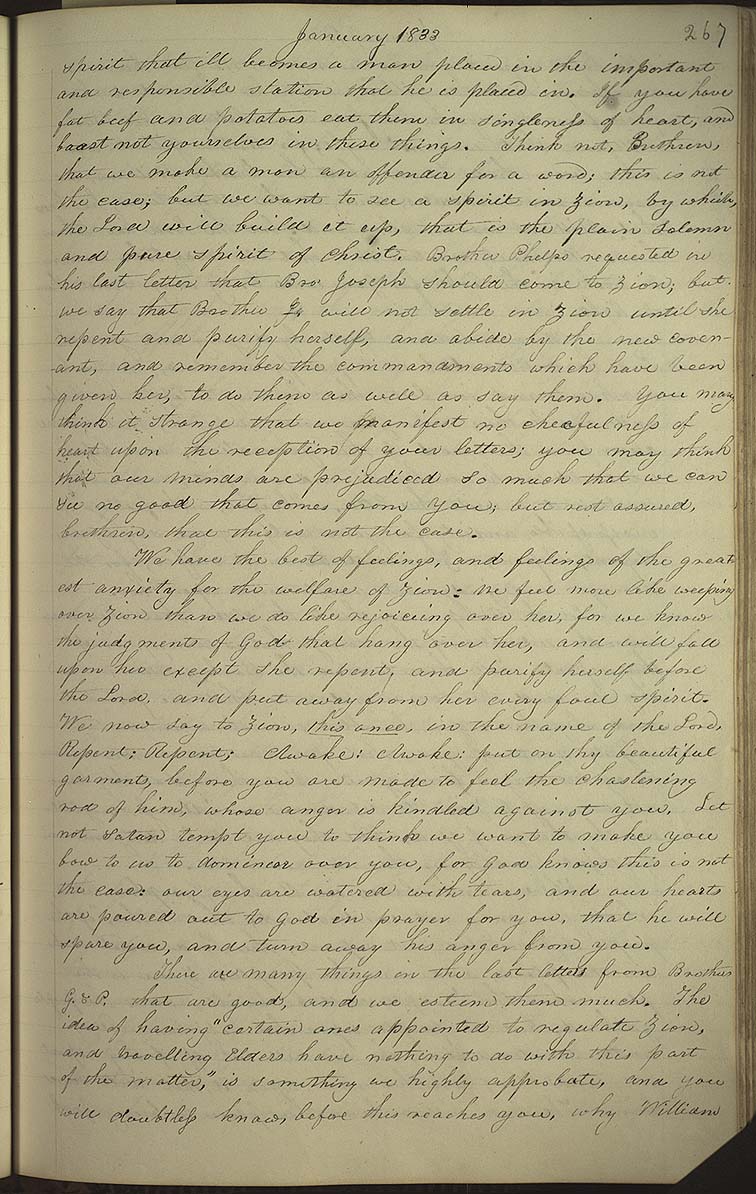 January 1833
267
spirit that ill becomes a man placed in the important
and responsible station that he is placed in. If you have
fat beef and potatoes eat them in singleness of heart, and
boast not yourselves in these things. Think not, Brethren,
that we make a man an offender for a word; this is not
the case; but we want to see a spirit in Zion, by which,
the Lord will build it up, that is the plain solemn
and pure spirit of Christ. Brother Phelps requested in
his last letter that Bro. Joseph should come to Zion; but
we say that Brother J. will not settle in Zion until she
repent and purify herself, and abide by the new coven-
ant, and remember the commandments which have been
given her, to do them as well as say them. You may
think it strange that we manifest no cheerfulness of
heart upon the reception of your letters; you may think
that our minds are prejudiced so much that we can
see no good that comes from you; but rest assured,
brethren, that this is not the case.
We have the best of feelings, and feelings of the great-
est anxiety for the welfare of Zion: we feel more like weeping
over Zion than we do like rejoicing over her, for we know
the judgments of God that hang over her, and will fall
upon her except she repent, and purify herself before
the Lord, and put away from her every foul spirit.
We now say to Zion, this once, in the name of the Lord,
Repent; Repent; Awake: Awake: put on thy beautiful
garments, before you are made to feel the chastening
rod of him, whose anger is kindled against you. Let
not Satan tempt you to think we want to make you
bow to us to domineer over you, for God knows this is not
the case: our eyes are watered with tears, and our hearts
are poured out to God in prayer for you, that he will
spare you, and turn away his anger from you.
There are many things in the last letters from Brothers
G. & P. that are good, and we esteem them much. The
idea of having "certain ones appointed to regulate Zion,
and travelling Elders have nothing to do with this part
of the matter," is something we highly approbate, and you
will doubtless know, before this reaches you, why William